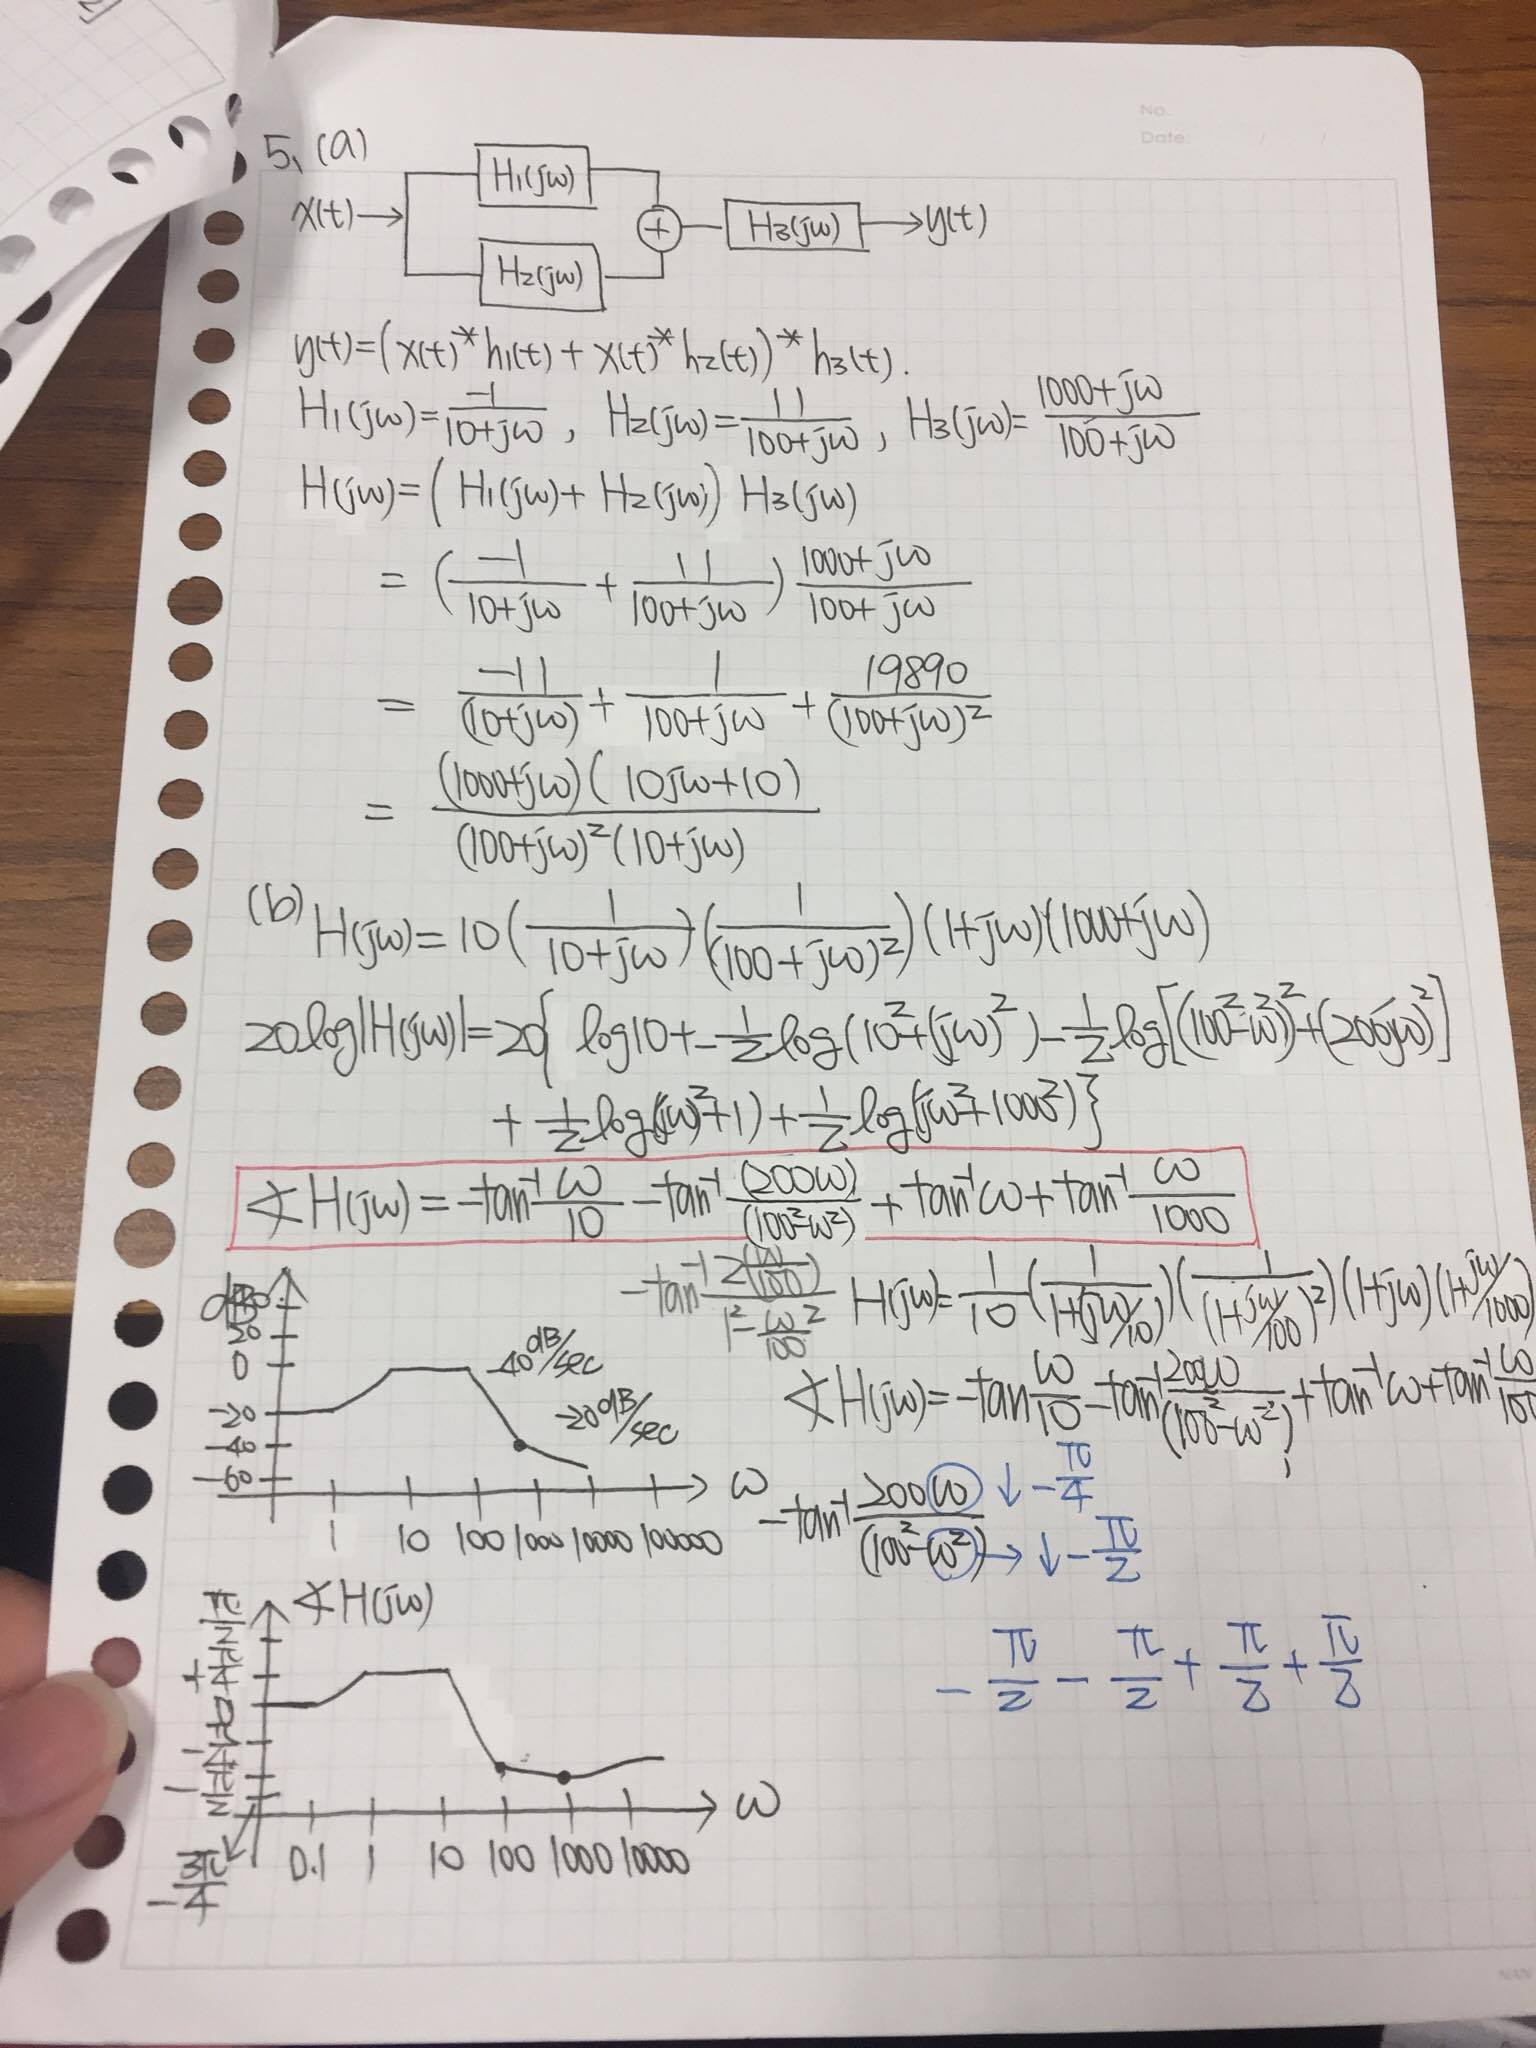 No.
Date: / /
5, (a)
x(t) → H1(jω) + H3(jω) → y(t)
H2(jω)
y(t)=(x(t)*h1(t)+x(t)*h2(t))*h3(t).
H1(jω)=-1/(10+jω), H2(jω)=11/(100+jω), H3(jω)=(1000+jω)/(100+jω)
H(jω)=(H1(jω)+H2(jω)) H3(jω)
= (-1/(10+jω) + 11/(100+jω)) (1000+jω)/(100+jω)
= -11/(10+jω) + 1/(100+jω) + 19890/(100+jω)²
= (1000+jω)(10jω+10)/((100+jω)²(10+jω))
(b) H(jω)=10(1/(10+jω))(1/(100+jω)²)(1+jω)(1000+jω)
20log|H(jω)|=20{log10+-½log(10²+(jω)²)-½log[(100²-ω²)²+(200jω)²]
+½log((jω)²+1)+½log(jω²+1000²)}
∡H(jω)=-tan⁻¹ω/10-tan⁻¹(200ω)/(100²-ω²)+tan⁻¹ω+tan⁻¹ω/1000
-tan⁻¹ 2(ω/100)/(1²-ω²/100)
H(jω)=1/10(1/(1+jω/10))(1/(1+jω/100)²)(1+jω)(1+jω/1000)
∡H(jω)=-tan ω/10-tan⁻¹200ω/(100²-ω²)+tan⁻¹ω+tan⁻¹ω/100
dB
20
0
-20
-40
-60
-40dB/sec
-20dB/sec
ω
1 10 100 1000 10000 100000
-tan⁻¹ 200ω/(100²-ω²) ↓-π/4
→ ↓-π/2
∡H(jω)
-π/2-π/2+π/2+π/2
0
-3π/4
ω
0.1 1 10 100 1000 10000